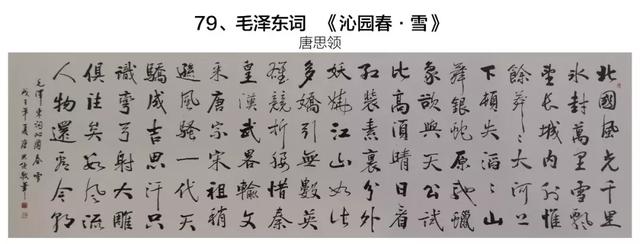 79、毛泽东词 《沁园春·雪》
唐思领
北國風光千里
冰封萬里雪飄
望長城內外惟
餘莽〻大河上
下頓失滔〻山
舞銀蛇原馳蠟
象欲與天公試
比高須晴日看
紅裝素裹分外
妖嬈江山如此
多嬌引無數英
雄競折腰惜秦
皇漢武畧輸文
采唐宗宋祖稍
遜風騷一代天
驕成吉思汗只
識彎弓射大雕
俱往矣數風流
人物還看今朝
毛澤東詞沁園春雪
年夏唐思領敬筆